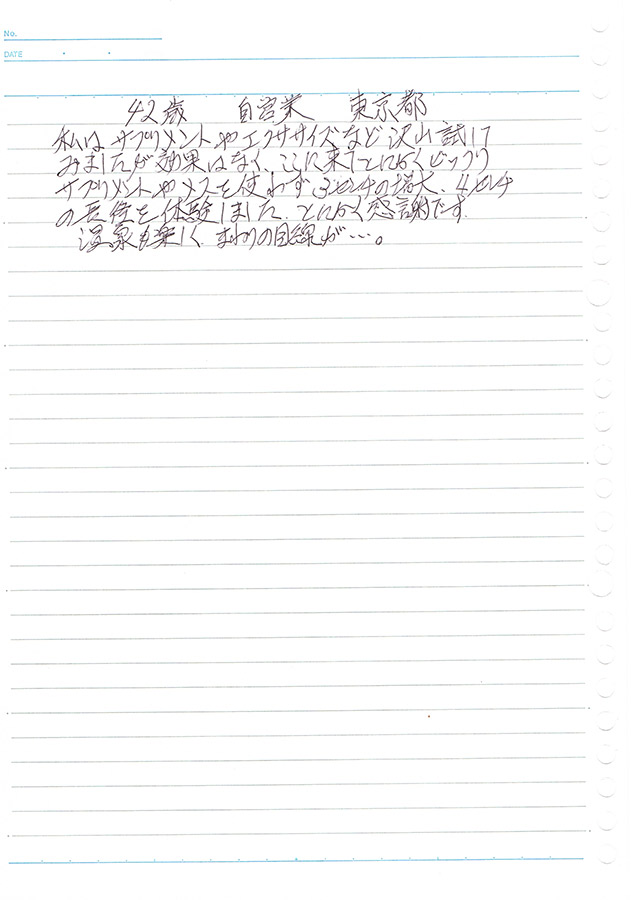 No.
DATE
42歳 自営業 東京都
私はサプリメントやエクササイズなど沢山試して
みましたが効果はなく、ここに来てとにかくビックリ
サプリメントやメスを使わず、3センチの増大、4センチ
の長径を体験しました、とにかく感謝です。
温泉も楽しく、まわりの目線が…。